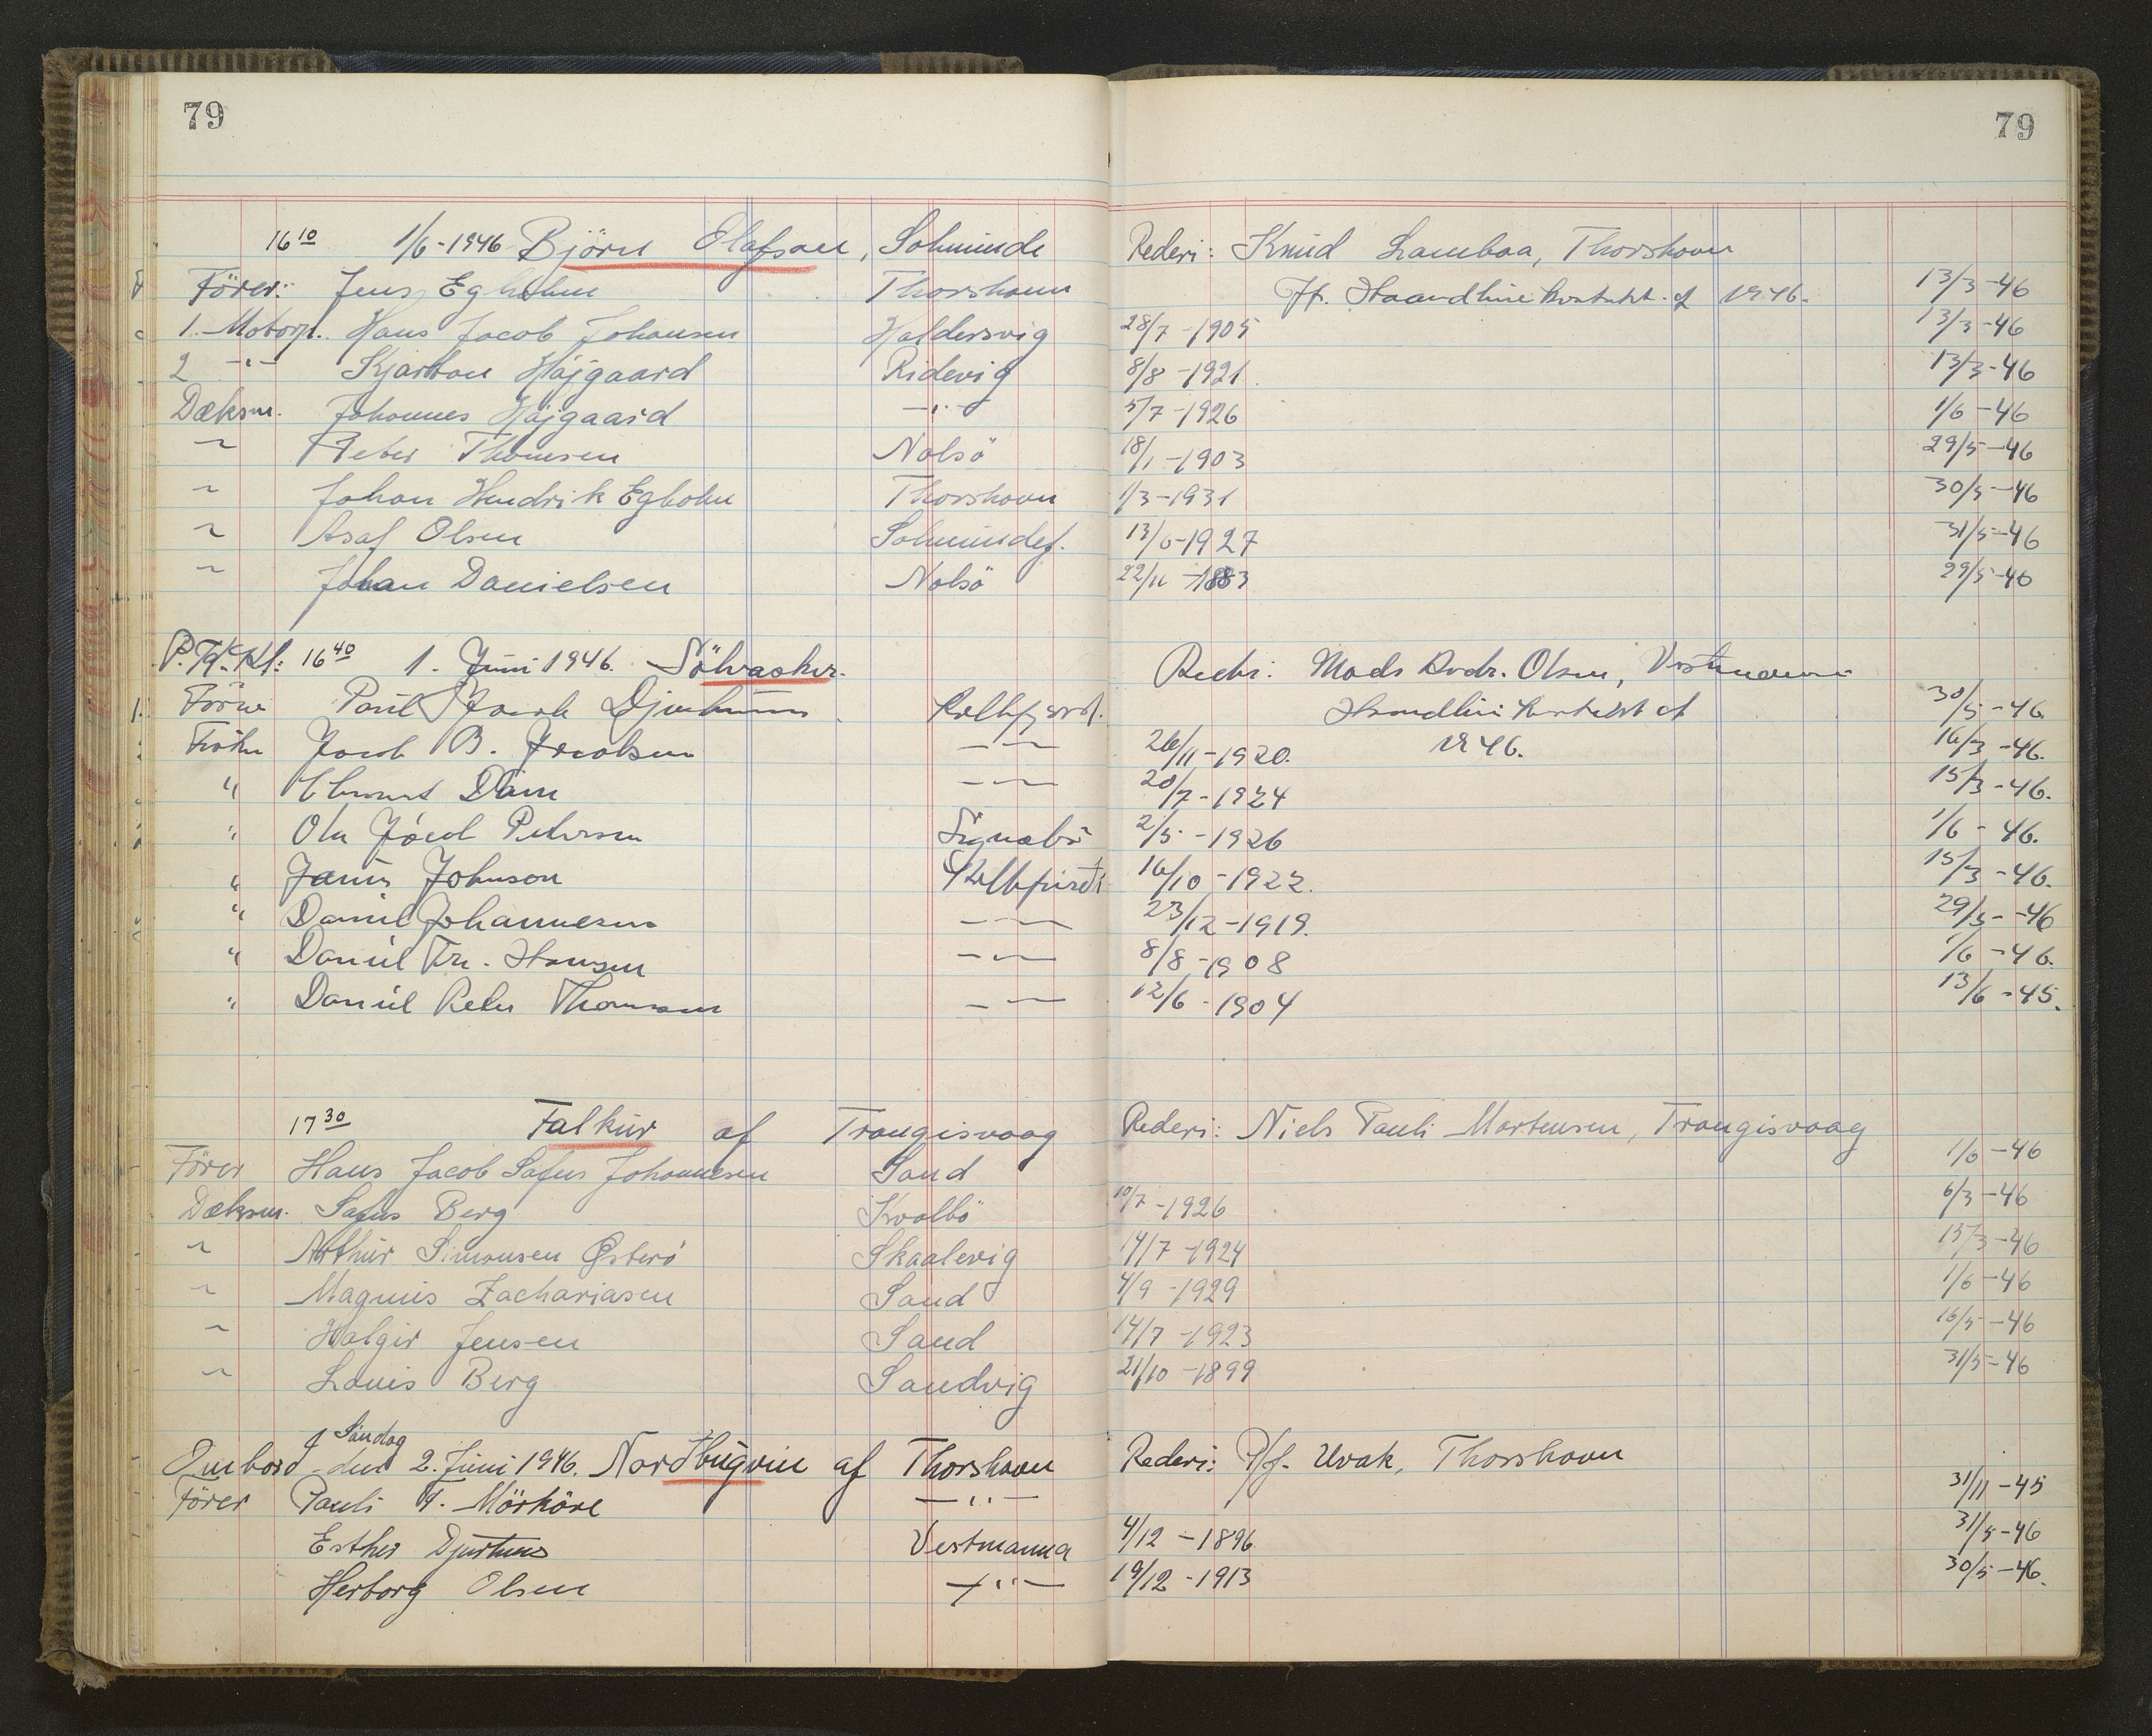 79 79
16 10 1/6-1946 Björn Olafson, Solmunde Rederi: Knud Lamboa, Thorshavn
Förer: Jens Egholm Thorshavn Jf. Haandline kontrakt. af 1946. 13/3-46
1. Motorp. Hans Jacob Johansen Haldersvig 28/7-1905 13/3-46
2 -"- Kjartan Højgaard Ridevig 8/8-1921. 13/3-46
Dæksm. Johannes Højgaard -"- 5/7-1926 1/6-46
~ Peter Thomsen Nolsö 18/1-1903 29/5-46
~ Johan Hendrik Egholm Thorshavn 1/3-1931 30/5-46
~ Asaf Olsen Solmundef. 13/6-1927 31/5-46
~ Johan Danielsen Nolsö 22/11-1883 29/5-46
Kl: 16 40 1. Juni 1946. Sölvasker. Rederi: Mads Andr. Olsen, Vestmanna
Förer Poul Jacob Djurhuus Kollefjord. Haandline kontrakt af 30/5-46
Jacob B. Jacobsen — — 26/11-1920. 1946. 16/3-46.
" Dam — — 20/7-1924 15/3-46.
" Ole Jácob Petersen Signabö 2/5-1926 1/6-46.
" Janus Johnson Kollefjord 16/10-1922. 15/3-46.
" Daniel Johannesen — — 23/12-1919. 29/5-46
" Daniel Fr. Hansen — — 8/8-1908 1/6-46.
" Daniel Peter Thomsen — — 12/6-1904 13/6-45.
17 30 Falkur af Trangisvaag Rederi: Niels Pauli Mortensen, Trangisvaag
Förer Hans Jacob Sofus Johannesen Sand 1/6-46
Dæksm. Sofus Berg Kvalbö 10/7-1926 6/3-46
~ Arthur Simonsen Østerö Skaalevig 14/7-1924 15/3-46
~ Magnus Zachariasen Sand 4/9-1929 1/6-46
~ Holgir Jensen Sand 14/7-1923 16/5-46
~ Louis Berg Sandvig 21/10-1899 31/5-46
Söndag
Ombord den 2. Juni 1946. Nordbugvin af Thorshavn Rederi: P/f. Uvak, Thorshavn
Förer Pauli F. Mörköre -"- 31/11-45
Esther Djurhuus Vestmanna 4/12-1896 31/5-46
Herborg Olsen -"- 19/12-1913 30/5-46.